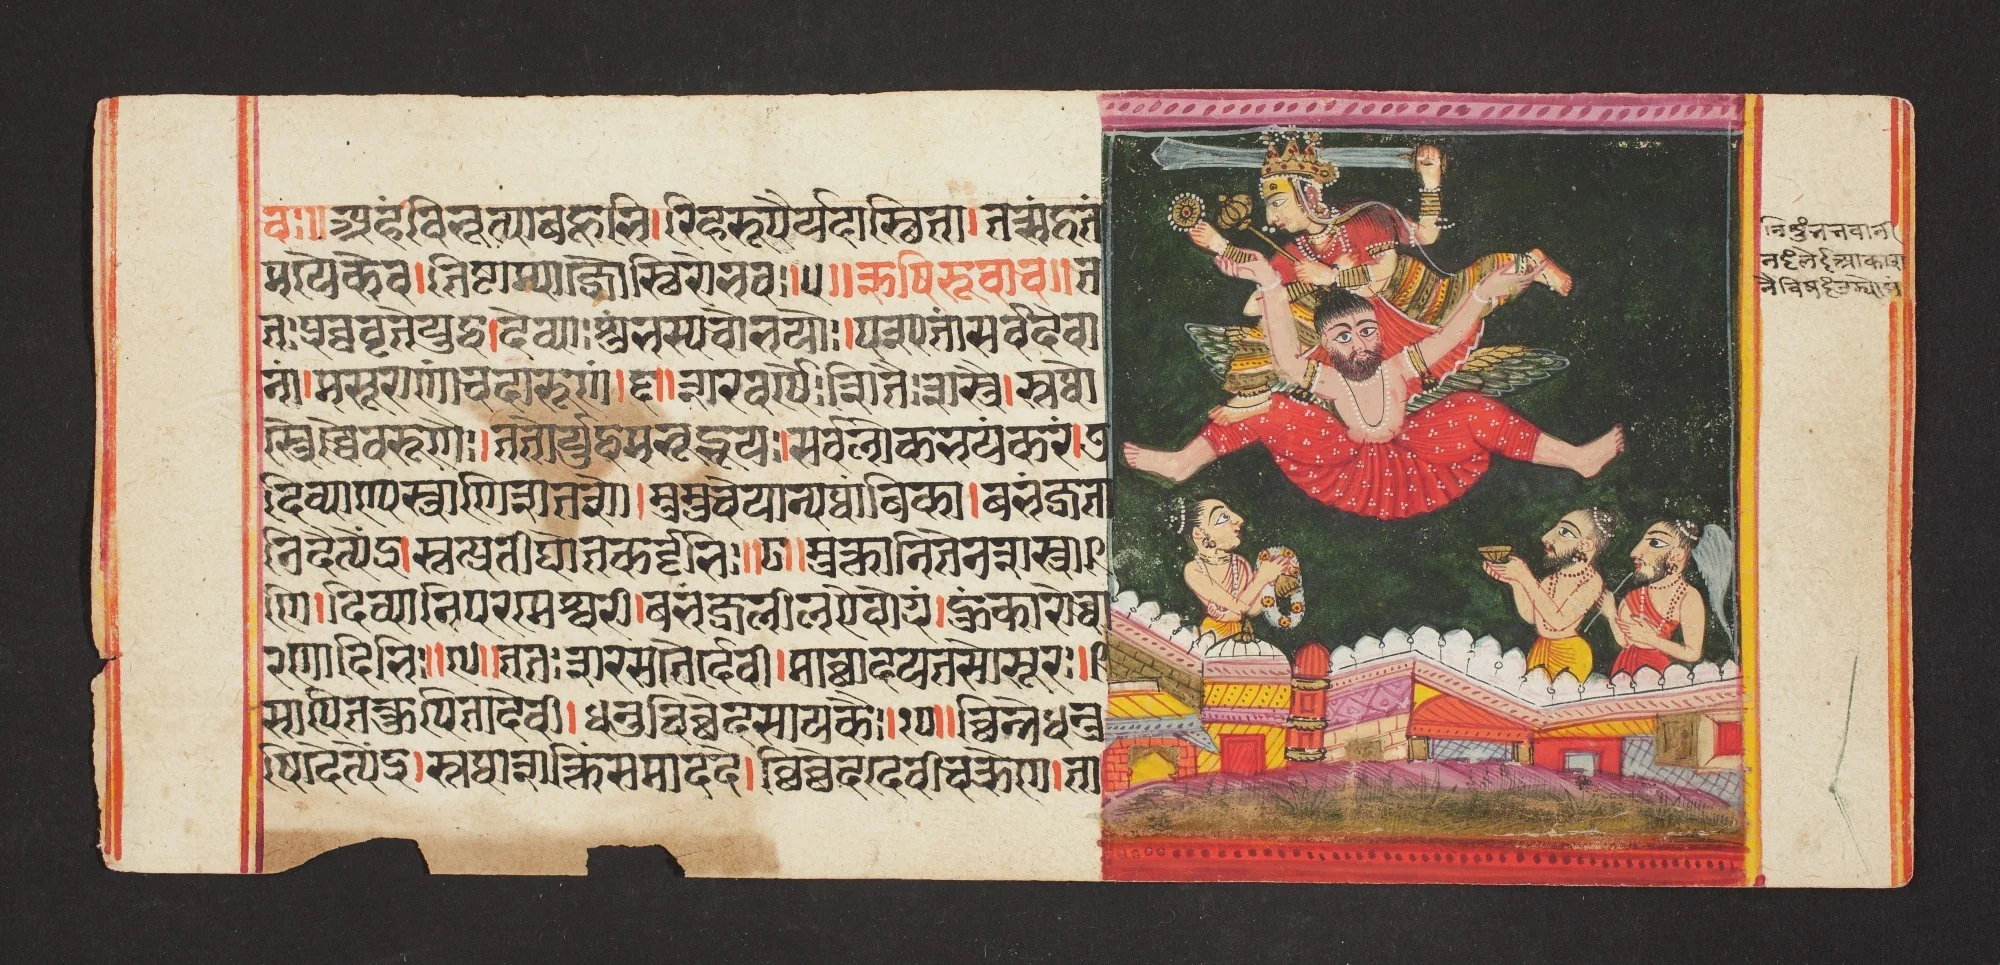 वः॥ अहं विभूत्या बहुभि। रिहरूपैर्यदास्थिता। तत्संहृतं
मयैकैव। तिष्टाम्याजौ स्थिरो भव॥५॥ ऋषिरुवाच॥ त
तः प्रववृते युद्धं। देव्याः शुंभस्य चोभयोः। पश्यतां सर्वदेवा
नां। मसुराणां च दारुणां।६॥ शरवर्षैः शितैः शस्त्रै। स्तथा
स्त्रैश्चैव दारुणैः। ततो र्युद्धमभूद्भूयः। सर्वलोकभयंकरं।७
दिव्याण्यस्त्राणि शतशो। मुमुचे यान्यथांबिका। बभंज ता
नि दैत्येंद्र। स्तत्प्रतीघातकर्तृभिः॥८॥ मुक्तानि तेन शस्त्रा
णि। दिव्यानि परमेश्वरी। बभंज लीलयैवोग्रं। हुंकारोच्चा
रणादिभिः॥९॥ ततः शरशतैर्देवी। माच्छादयत सोसुरः॥
सापि तत्कुपिता देवी। धनुश्चिच्छेद सायकैः॥१०॥ छिन्ने धनु
षि दैत्येंद्र। स्तथा शक्तिं समाददे। चिच्छेद देवी चक्रेण। ता